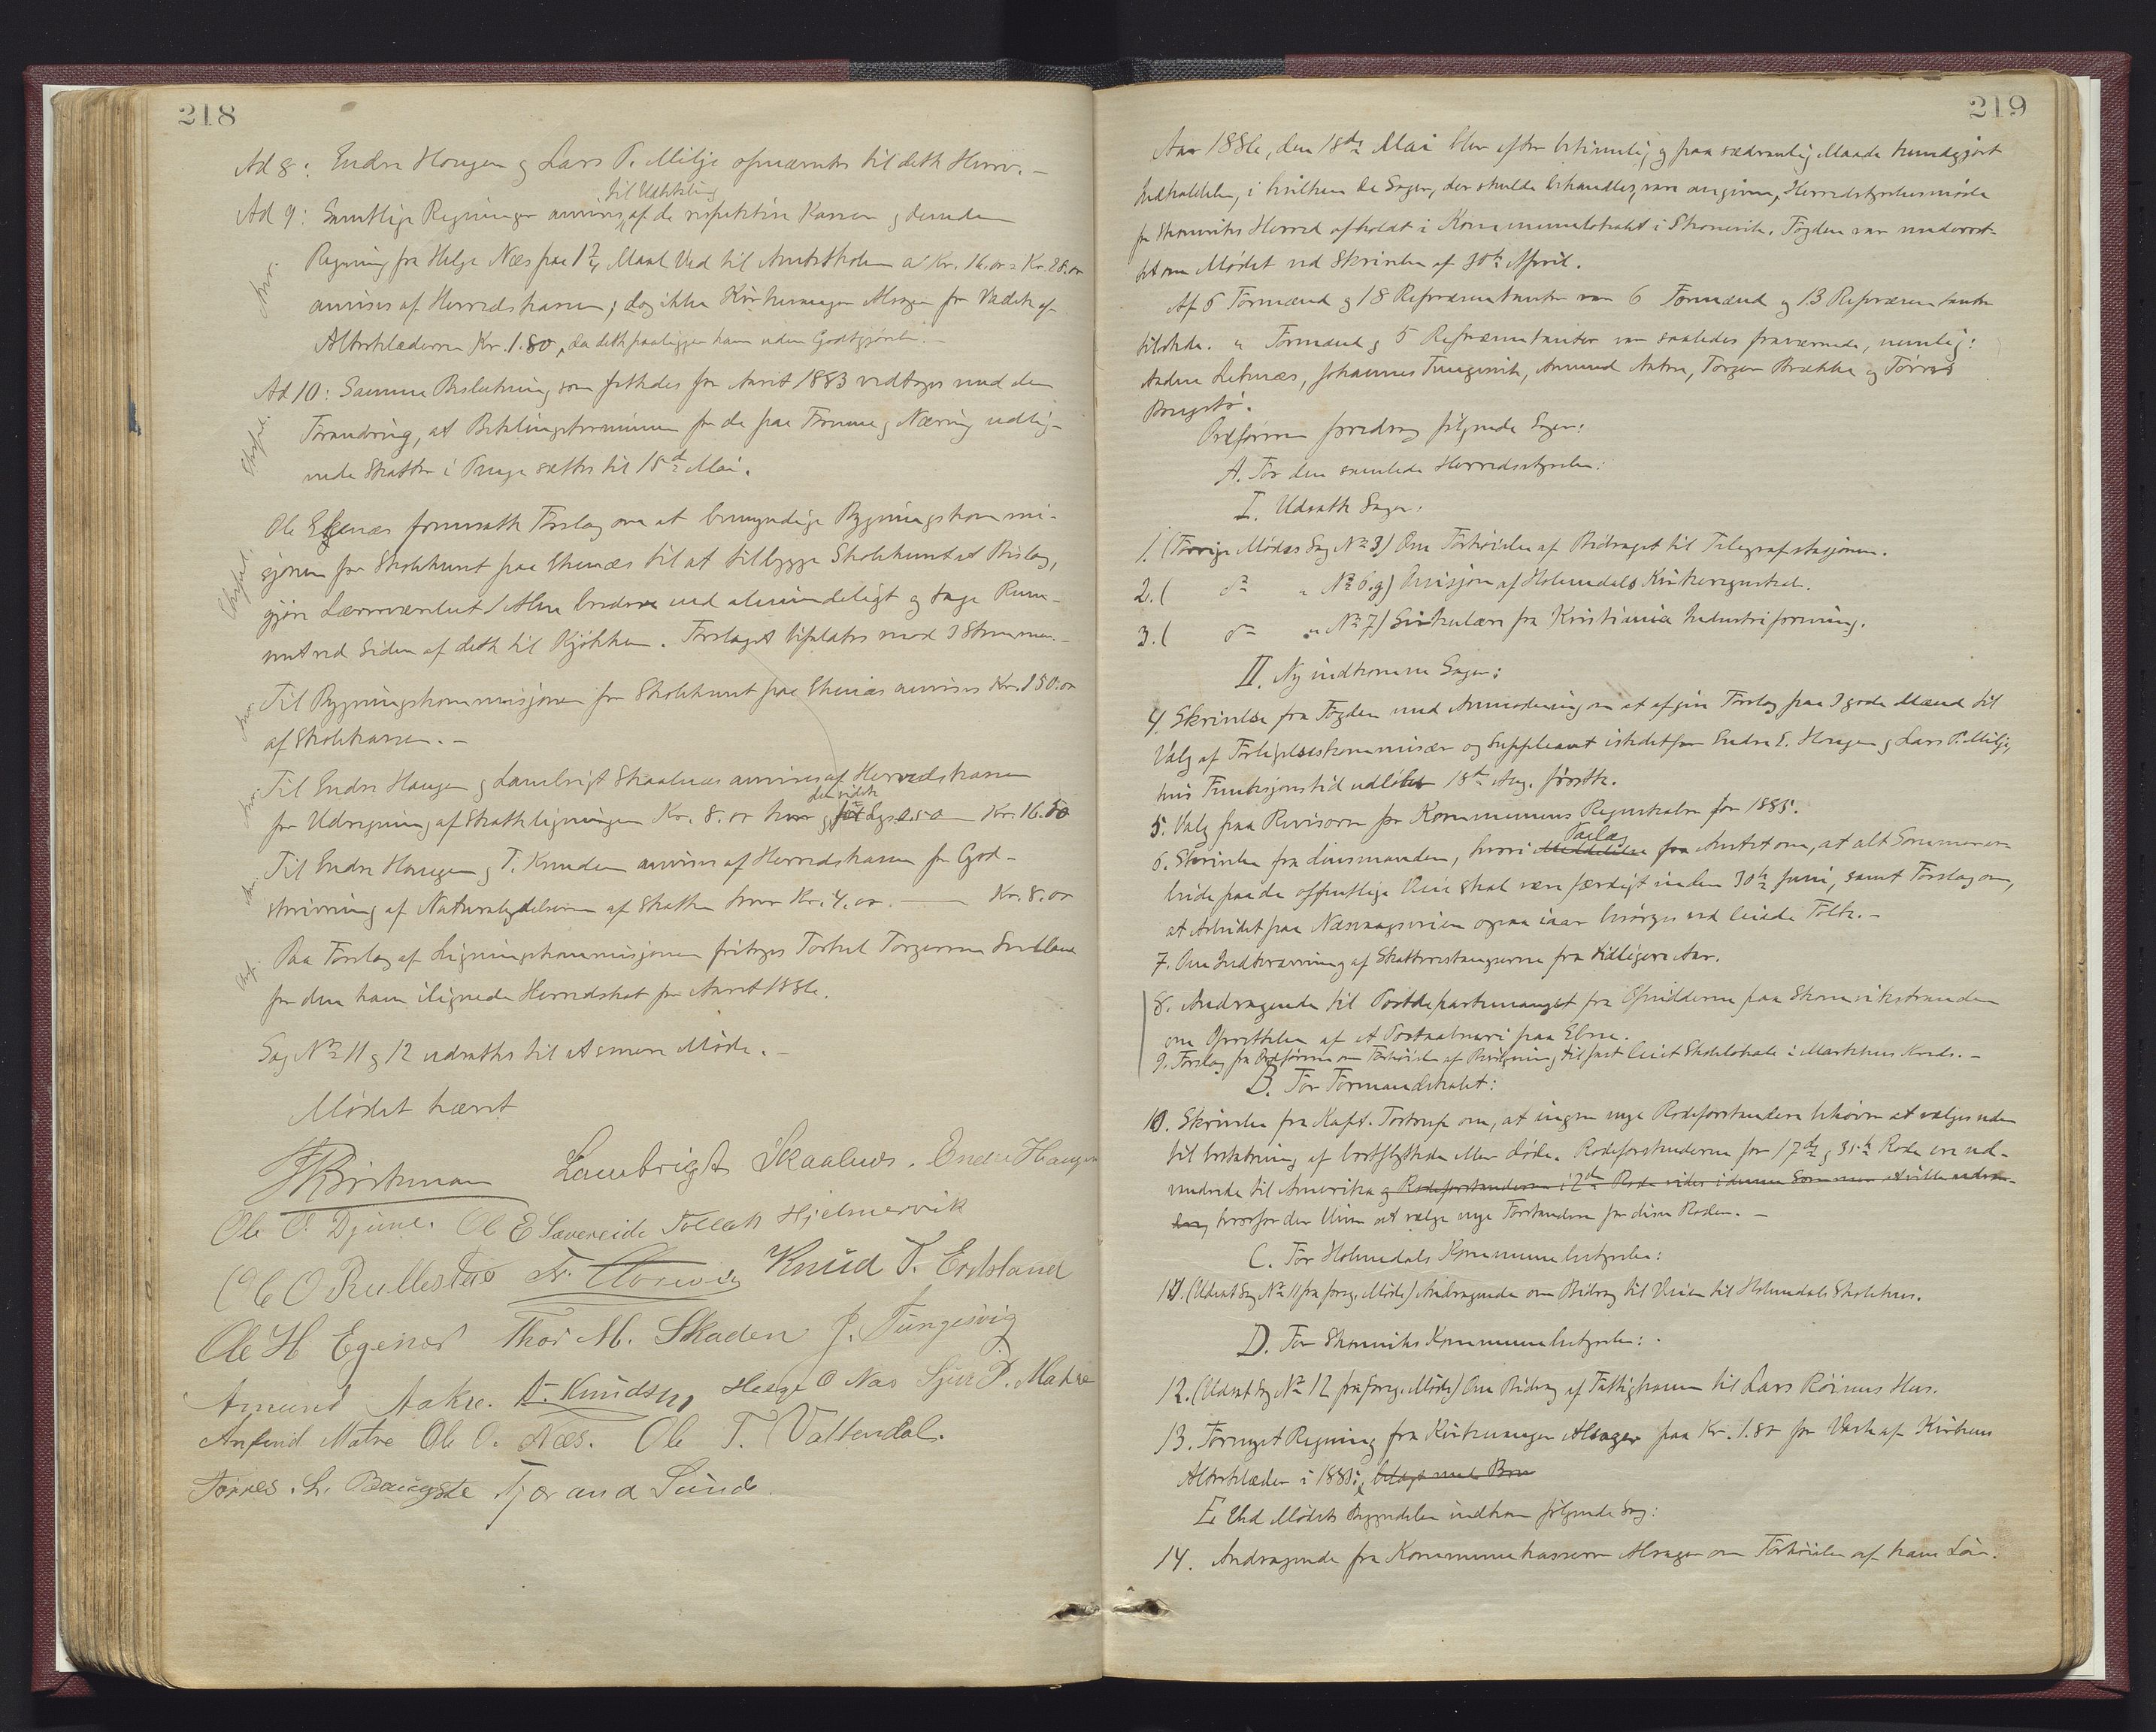 218
Ad 8: Endre Hougen og Lars T. Milje opnævntes til dette Hverv. –
til Udbetaling
Ad 9: Samtlige Regninger anvises af de respektive Kasser og desuden
Regning fra Helge Næs paa 1 3/4 Maal Ved til Amtsskolen a Kr. 16.00 = Kr. 28.00
Anv.
anvises af Herredskassen; dog ikke Kirkesanger Alsager for Vadsk af
Alterklæderne Kr. 1.80, da dette paaligger ham uden Godtgjørelse. –
Ad 10: Samme Beslutning som fattedes for Aaret 1883 vedtoges med den
Forandring, at Betalingsterminen for de paa Formue og Næring udlig-
Skafed.
nede Skatter i Penge sættes til 15de Mai.
Ole Egenæs fremsatte Forslag om at bemyndige Bygningskommi-
sjonen for Skolehuset paa Utenæs til at tilbygge Skolehuset et Bislag,
gjøre Lærerværelset 1 Alen bredere end almindeligt og tage Rum-
met ved Siden af dette til Kjøkken. Forslaget bifaldtes mod 3 Stemmer. –
Anv.
Til Bygningskommisjonen for Skolehuset paa Utenæs anvises Kr. 150.00
af Skolekassen. –
Anv.
Til Endre Hougen og Lambrigt Skaalnes anvises af Herredskassen
den sidste
for Udregning af Skatteligningen Kr. 8.00 hver og 0.50 – Kr. 16.50
Anv.
Til Endre Hougen og T. Knudsen anvises af Herredskassen for God-
skrivning af Naturalydelserne af Skatten hver Kr. 4.00. – Kr. 8.00
Paa Forslag af Ligningskommisjonen fritages Torkel Torgersen
for den ham ilignede Herredsskat for Aaret 1886.
Sag No 11 og 12 udsattes til et senere Møde. –
Mødet hævet
Brinkmann Lambrigt Skaalnes. Endre Haugen
Ole O. Djuve. Ol E Sævereide Tollak Hjelmervik
Ole O Rullestad Knud T. Erdsland
Ole H Egenes Thor M. Skaden J. Tungesvig
Amund Aakre. T. Knudsen Helge O Næs Sjur P. Matre
Anfind Matre Ole O. Næs. Ole T. Valtendal.
Tørres. L. Baugste Tjerand Sunde
219
Aar 1886, den 18de Mai blev efter betimelig og paa sædvanlig Maade kundgjort
Indkaldelse, i hvilken de Sager, der skulde behandles, vare angivne, Herredsstyrelsesmøde
for Skonviks Herred afholdt i Kommunelokalet i Skonevik. Fogden var underret-
tet om Mødet ved Skrivelse af 30te April.
Af 6 Formænd og 18 Repræsentanter var 6 Formænd og 13 Repræsentanter
tilstede. " Formænd og 5 Repræsentanter var saaledes fraværende, nemlig:
Anders Letnæs, Johannes Tungesvik, Amund Aakre, Torger Brække og Tørres
Bougstø.
Ordføreren foredrog følgende Sager:
A. For den samlede Herredsstyrelse:
I. Udsatte Sager:
1. (Forrige Mødes Sag No 3) Om Forhøielse af Bidraget til Telegrafstasjonen.
2. ( do " No 6.g) Desisjon af Holmedals Kirkeregnskab.
3. ( do " No 7) Sirkulære fra Kristiania Industriforening.
II. Ny indkomne Sager:
4. Skrivelse fra Fogden med Anmodning om at afgive Forslag paa 3 gode Mænd til
Valg af Forligelseskommisær og Suppleant istedetfor Endre E. Hougen og Lars T. Milje,
hvis Funksjonstid udløber 18de Aug. førstk.
5. Valg paa Revisorer for Kommunens Regnskaber for 1885.
Paalæg
6. Skrivelse fra Lensmanden, hvori Meddelelse fra Amtet om, at alt Sommerar-
beide paa de offentlige Veie skal være færdigt inden 30te Juni, samt Forslag om,
at Arbeidet paa Næsmagsveien ogsaa iaar besørges ved leiede Folk. –
7. Om Indkrævning af Skatterestangserne fra tidligere Aar.
8. Andragende til Postdepartemanget fra Opsidderne paa Skonevikstranden
om Oprettelse af et Postaabneri paa Ebne.
9. Forslag fra Ordføreren om Forhøielse af Bevilgning til fast leiet Skolelokale i Markhus Kreds. –
B. For Formandskabet:
10. Skrivelse fra Kapt. Tostrup om, at ingen nye Rodeforstandere behøver at vælges uden
til Erstatning af bortflyttede eller døde. Rodeforstanderne for 17de og 31te Rode ere ud-
vandrede til Amerika og Rodeforstanderen i 2den Rode siges i denne Sommer at ville udvan-
dre, hvorfor der bliver at vælge nye Forstandere for disse Roder. –
C. For Holmedals Kommunebestyrelse:
11. (Udsat Sag No 11 fra forrige Møde) Andragende om Bidrag til Veien til Holmedals Skolehus.
D. For Skonviks Kommunebestyrelse: .
12. (Udsat Sag No 12 fra forrige Møde) Om Bidrag af Fattigkassen til Lars Røines Hus.
13. Fornyet Regning fra Kirkesanger Alsager paa Kr. 1.80 for Vask af Kirkens
Alterklæder i 1885, belagt med Bem
E. Ved Mødets Begyndelse indkom følgende Sag:
14. Andragende fra Kommunekasserer Alsager om Forhøielse af hans Løn.